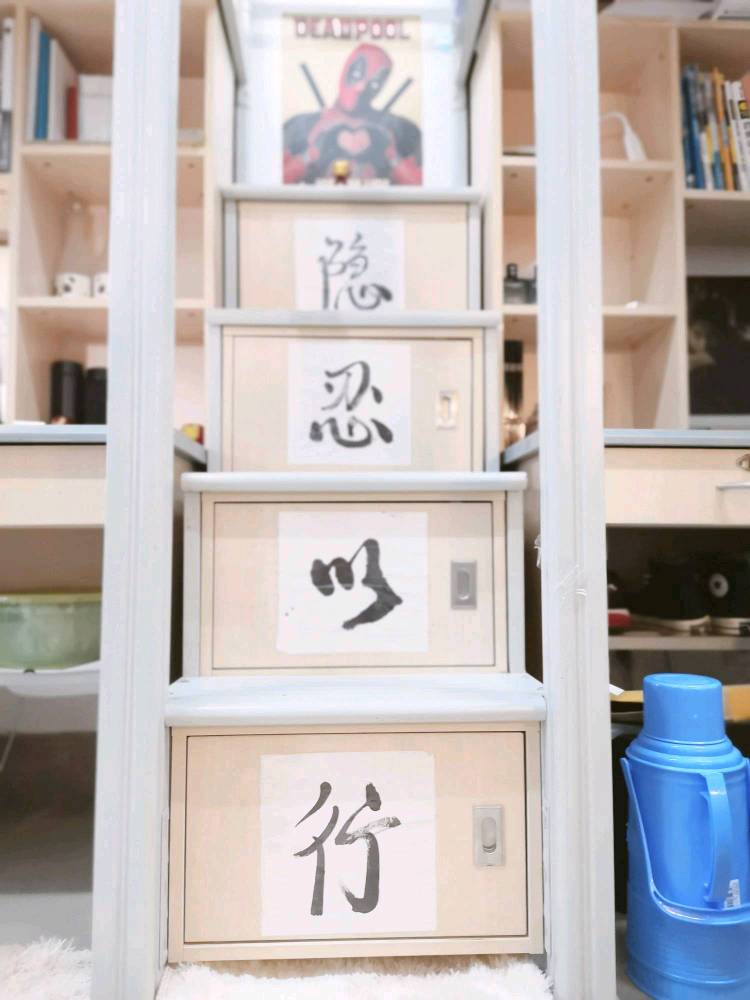 DEADPOOL
隐
忍
以
行